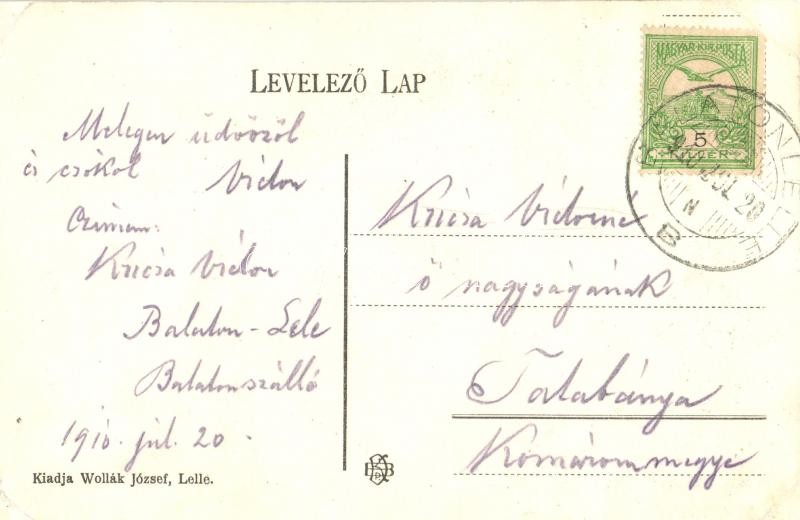 LEVELEZŐ LAP
MAGYAR KIR. POSTA
5
FILLÉR
BALATONLELLE
910 JUL 20
N
B
Melegen üdvözöl
és csókol Vidor
Czimem:
Kricsa Vidor
Balaton-Lele
Balatonszálló
1910. júl. 20.
Kricsa Vidorné
ő nagyságának
Tatabánya
Komárommegye
Kiadja Wollák József, Lelle.